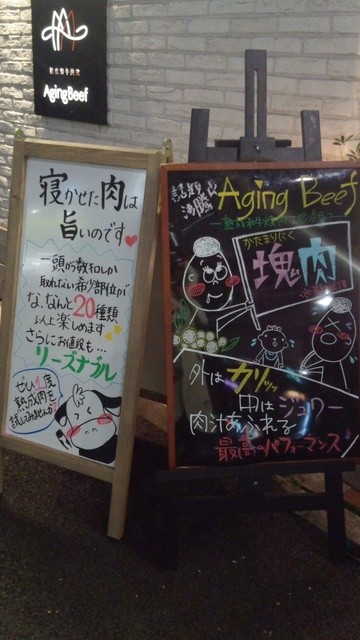 Aging Beef
寝かせた肉は
旨いのです
一頭から数キロしか
取れない希少部位が
な、なんと20種類
以上楽しめます
さらにお値段も…
リーズナブル
ぜひ1度
熟成肉を
試してみませんか?
話題沸騰
Aging Beef
かたまりにく
塊肉
外はカリッッ
中はジュワー
肉汁あふれる
最高のパフォーマンス